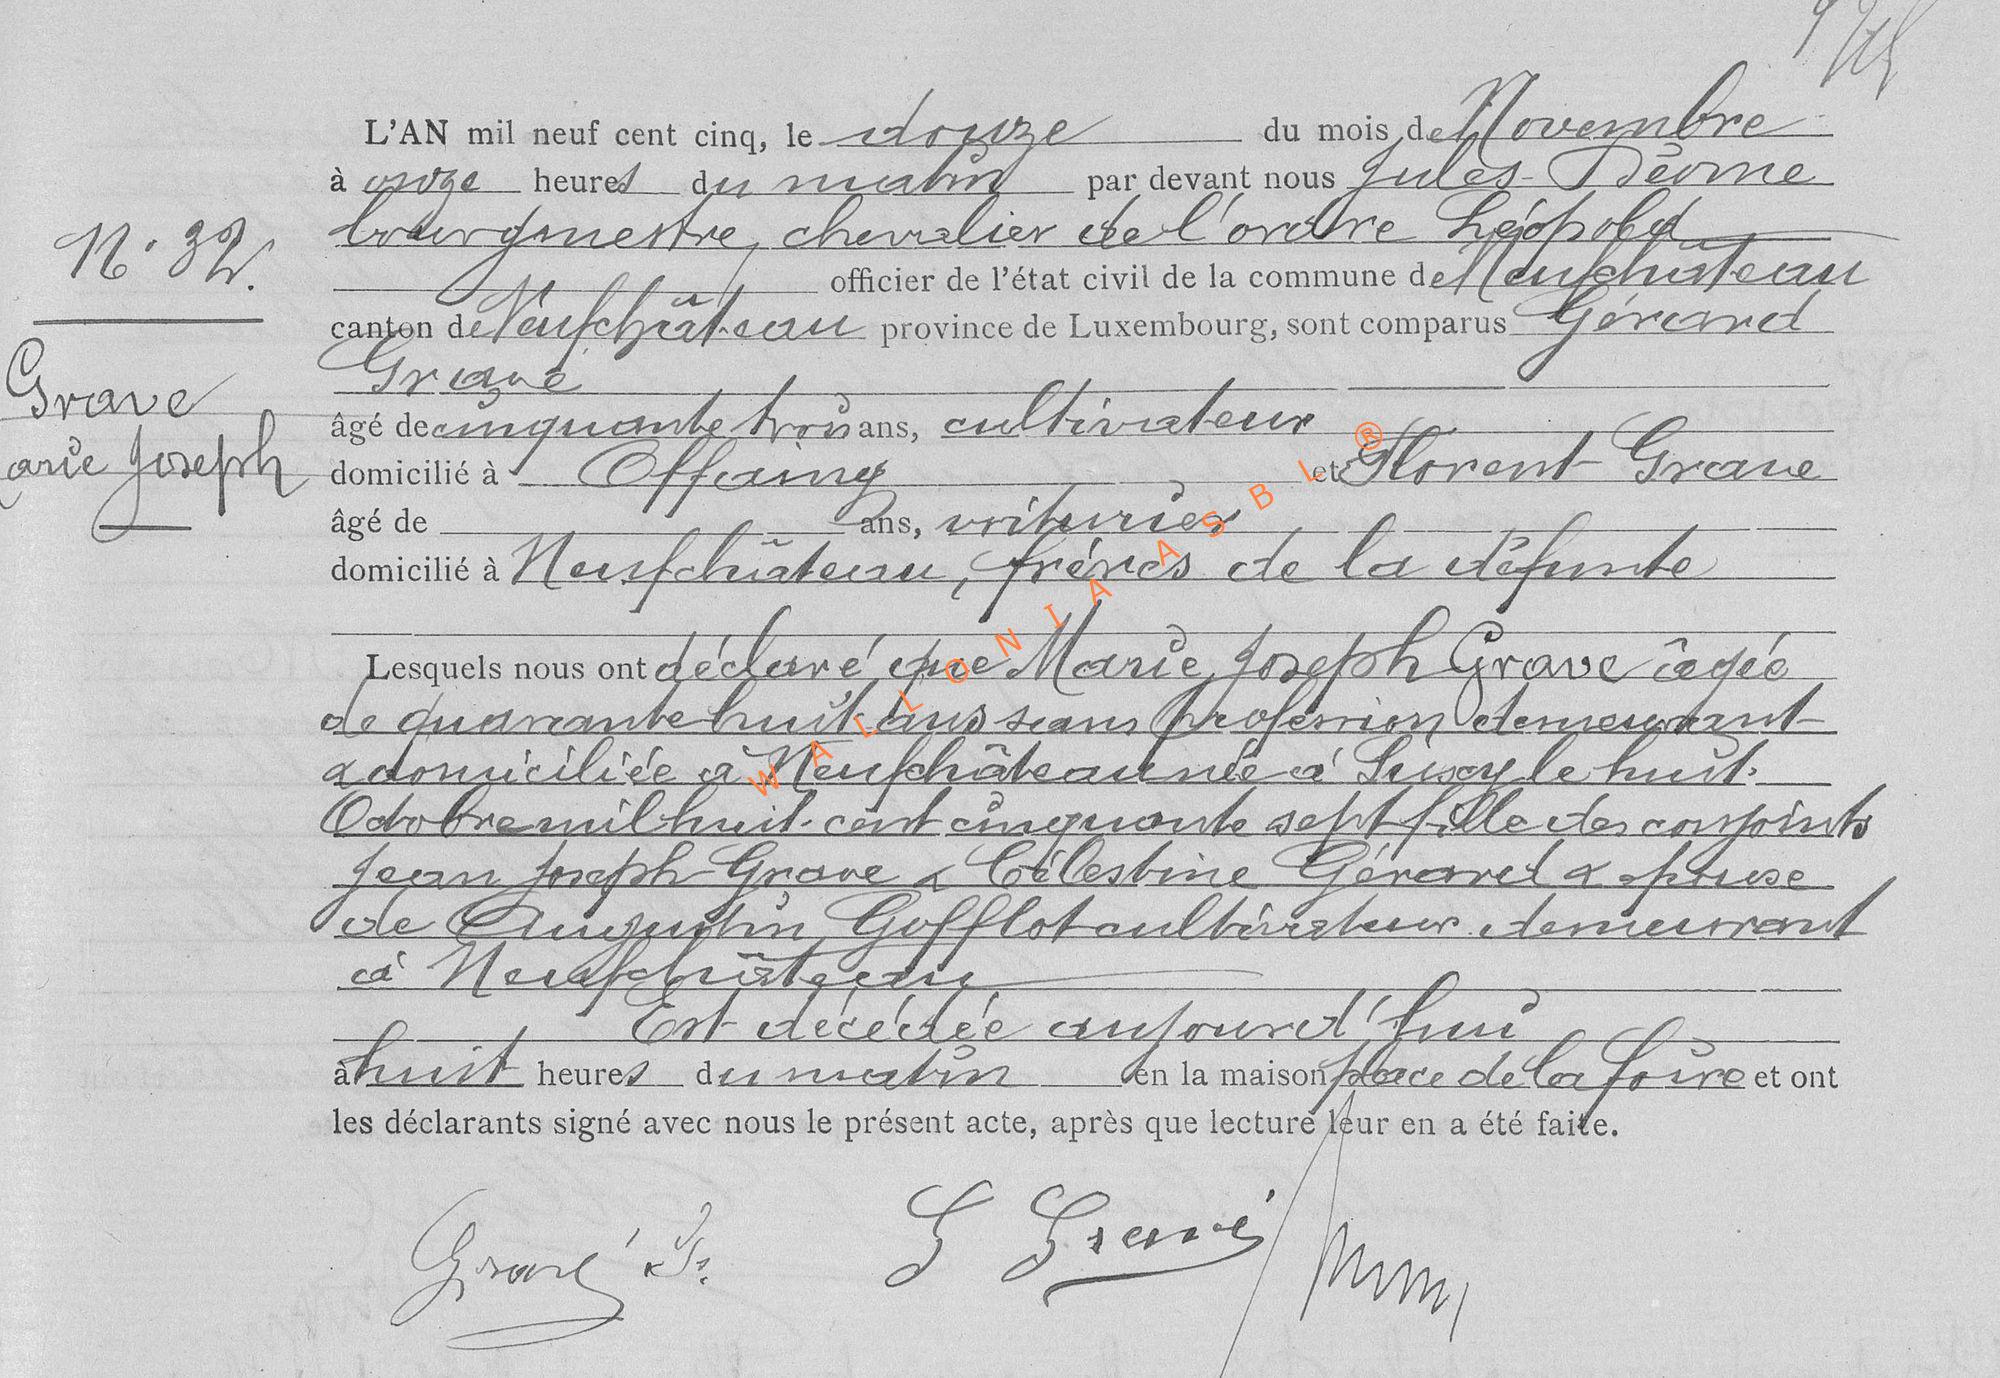 L'AN mil neuf cent cinq, le douze du mois de Novembre
à onze heures du matin par devant nous Jules
bourgmestre, chevalier de l'ordre Léopold
officier de l'état civil de la commune de Neufchâteau
canton de Neufchâteau province de Luxembourg, sont comparus Gérard
Grave
âgé de cinquante trois ans, cultivateur
domicilié à Offaing et Florent Grave
âgé de ans, voiturier
domicilié à Neufchâteau, frères de la défunte
Lesquels nous ont déclaré que Marie Joseph Grave âgée
de quarante huit ans sans profession demeurant
& domiciliée à Neufchâteau née à le huit
Octobre mil huit cent cinquante sept fille des conjoints
Jean Joseph Grave & Célestine Gérard & épouse
de Augustin Gofflot cultivateur demeurant
à Neufchâteau
Est décédée aujourd'hui
à huit heures du matin en la maison place de la foire et ont
les déclarants signé avec nous le présent acte, après que lecture leur en a été faite.
N. 32.
Grave
arie Joseph
Gravé
G Gravé
WALLONIA ASBL ®